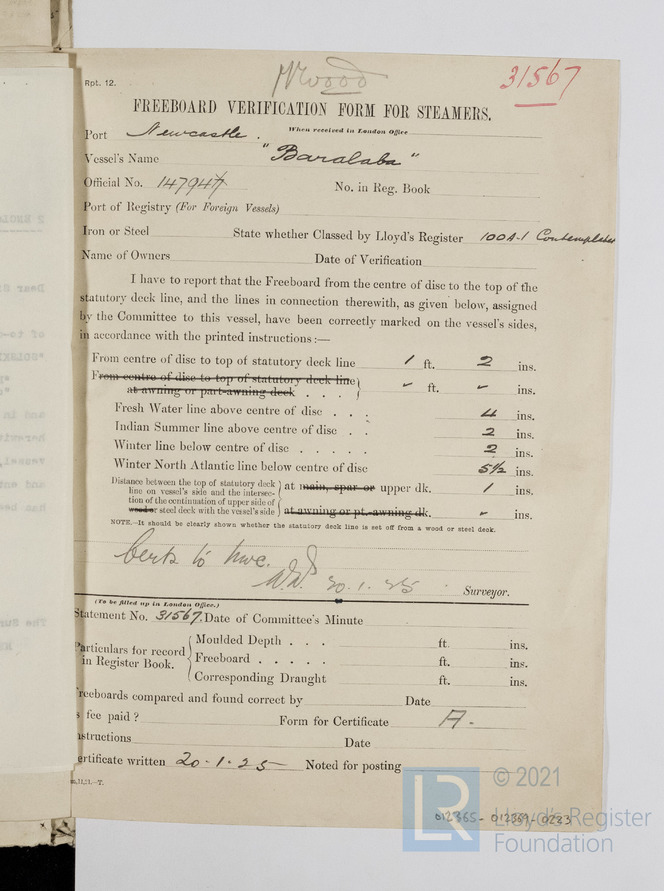 Rpt. 12.
Wood
31567
FREEBOARD VERIFICATION FORM FOR STEAMERS.
Port Newcastle. When received in London Office
Vessel's Name "Baralaba"
Official No. 147947 No. in Reg. Book
Port of Registry (For Foreign Vessels)
Iron or Steel State whether Classed by Lloyd's Register 100A-1 Contemplated
Name of Owners Date of Verification
I have to report that the Freeboard from the centre of disc to the top of the
statutory deck line, and the lines in connection therewith, as given below, assigned
by the Committee to this vessel, have been correctly marked on the vessel's sides,
in accordance with the printed instructions :—
From centre of disc to top of statutory deck line 1 ft. 2 ins.
From centre of disc to top of statutory deck line
at awning or part-awning deck . . . " ft. " ins.
Fresh Water line above centre of disc . . . 4 ins.
Indian Summer line above centre of disc . . 2 ins.
Winter line below centre of disc . . . . . 2 ins.
Winter North Atlantic line below centre of disc 5½ ins.
Distance between the top of statutory deck
line on vessel's side and the intersec-
tion of the continuation of upper side of
wood or steel deck with the vessel's side
at main, spar or upper dk. 1 ins.
at awning or pt.-awning dk. " ins.
NOTE.—It should be clearly shown whether the statutory deck line is set off from a wood or steel deck.
Certs to Nwc.
20.1.25 Surveyor.
(To be filled up in London Office.)
Statement No. 31567. Date of Committee's Minute
Particulars for record
in Register Book.
Moulded Depth . . . ft. ins.
Freeboard . . . . . ft. ins.
Corresponding Draught ft. ins.
reeboards compared and found correct by Date
s fee paid ? Form for Certificate A.
nstructions Date
ertificate written 20.1.25 Noted for posting
m,11,21.—T.
012365-012369-0223
LR
© 2021
Lloyd's Register
Foundation